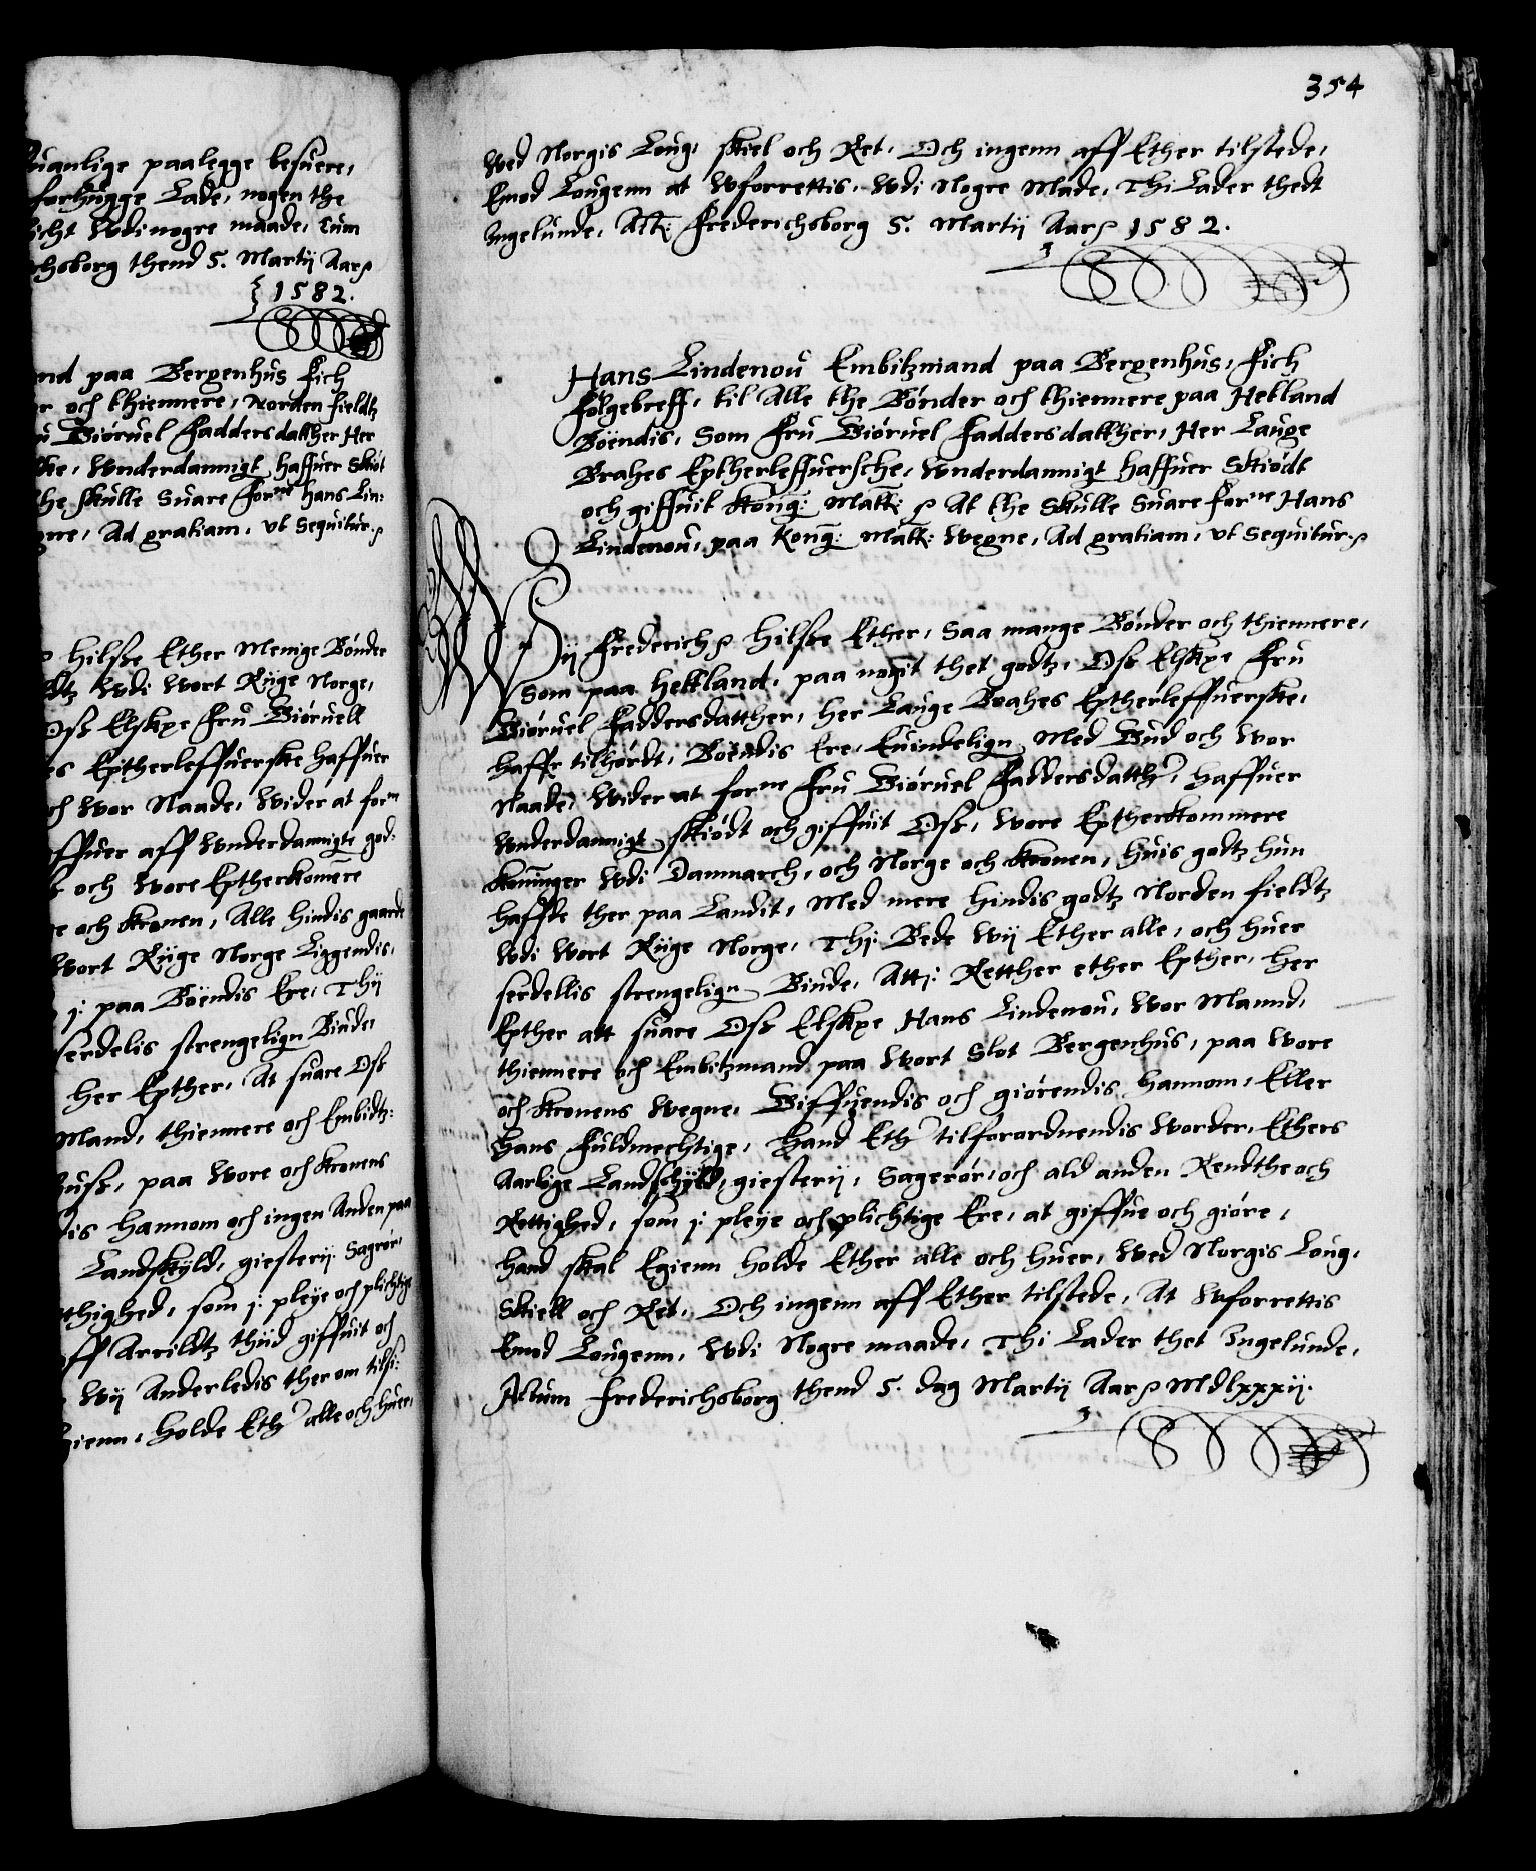 uanlige paalegge besuere,
forhugge Lade, nogen the
icht Wdi nogre maade, Cum
chsborg thend 5. Martij Aar
1582.
nd paa Bergenhus Fich
er och thiennere, Norden Fieldtz
u Biøruel Faddersdatther Her
ke, Wnderdannigt haffuer Skiøt
he skulle Suare for:ne Hans Lin:
gne, Ad gratiam, vt Sequitur
hilsze Ether Menige Bønder
dtz Wdi Wort Rige Norge,
Osz Elskpe Fru Biøruell
es Epitherleffuerske haffuer
ch Wor Naade, Wider at for:ne
ffuer aff Wnderdannigte god:
och Wore Eptherkomere
e och Kronen, Alle hindis gaarde
Wort Rige Norge Liggendis,
j: paa Boëndis Ere, Thij
serdelis strengelign Biude,
her Epther, At suare Osz
Mand, thiennere och Embidtz:
husz, paa Wore och Kronens
dis hannom och ingen Anden paa
Landskyld, giesterij Sagerør,
tthighed, som j: pleye och plichtige
ff Arrildtz thiid giffuit och
Wij Anderledis ther om tilsi:
gienn, holde Eth alle och huer,
354
Wed Norgis Loug, skiel och Ret, Och ingenn aff Ether tilstede,
Emod Lougenn at Wforrettis, Wdi Nogre Made, Thi Lader thedt
Ingelunde, Act: Frederichsborg 5. Martij Aar 1582.
Hans Lindenou Embitzmand paa Bergenhus, Fich
Følgebreff, til Alle the Bønder och thiennere paa Hetland
Boëndis, Som Fru Biøruel Faddersdatther, Her Lauge
Brahes Eptherleffuersche, Wnderdannigt haffuer Skiødt
och giffuit Kong: Matt: At the Skulle Suare for:ne Hans
Lindenou, paa Kong: Matt: Wegne, Ad gratiam, vt Sequitur.
Wij Frederich hilsze Ether, Saa mange Bønder och thiennere,
Som paa Hettland, paa nogit thet godtz, Osz Elskpe Fru
Biøruel Faddersdatther, her Lauge Brahes Eptherleffuerske,
haffr tilhørdt, Boëndis Ere, Euindelign Med Gud och Wor
Naade, Wider at for:ne Fru Biøruel Faddersdatth, haffuer
Wnderdannigt skiødt och giffuit Osz, Wore Eptherkommere
Koninger Wdi Danmarch, och Norge och Kronen, huis godtz hun
haffde ther paa Landit, Med mere hindis godtz Norden Fieldtz
Wdi Wort Rige Norge, Thj: Bede Wij Ether alle, och huer
serdellis strengelign Biude, Att j: Retther ether Epther, her
Epther att suare Osz Elskpe Hans Lindenou, Wor Mannd,
thiennere och Embitzmand paa Wort Slot Bergenhus, paa Wore
och Kronens Wegne, Giffuendis och giørendis hannom, Eller
hans Fuldmechtige, Hand Eth tilforordnendis Worder, Ethers
Aarlige Landschyld, giesterij, Sagerør, och ald anden Rendthe och
Rettighed, som j: pleye och plichtige Ere, at giffue och giøre,
hand skal Egienn holde Ether alle och huer, Wed Norgis Loug,
Skiell och Ret, Och ingenn aff Ether tilstede, At Wforrettis
Emod Lougenn, Wdi Nogre maade, Thi Lader thet Ingelunde,
Actum Frederichsborg thend 5. dag Martij Aar Mdlxxxij.